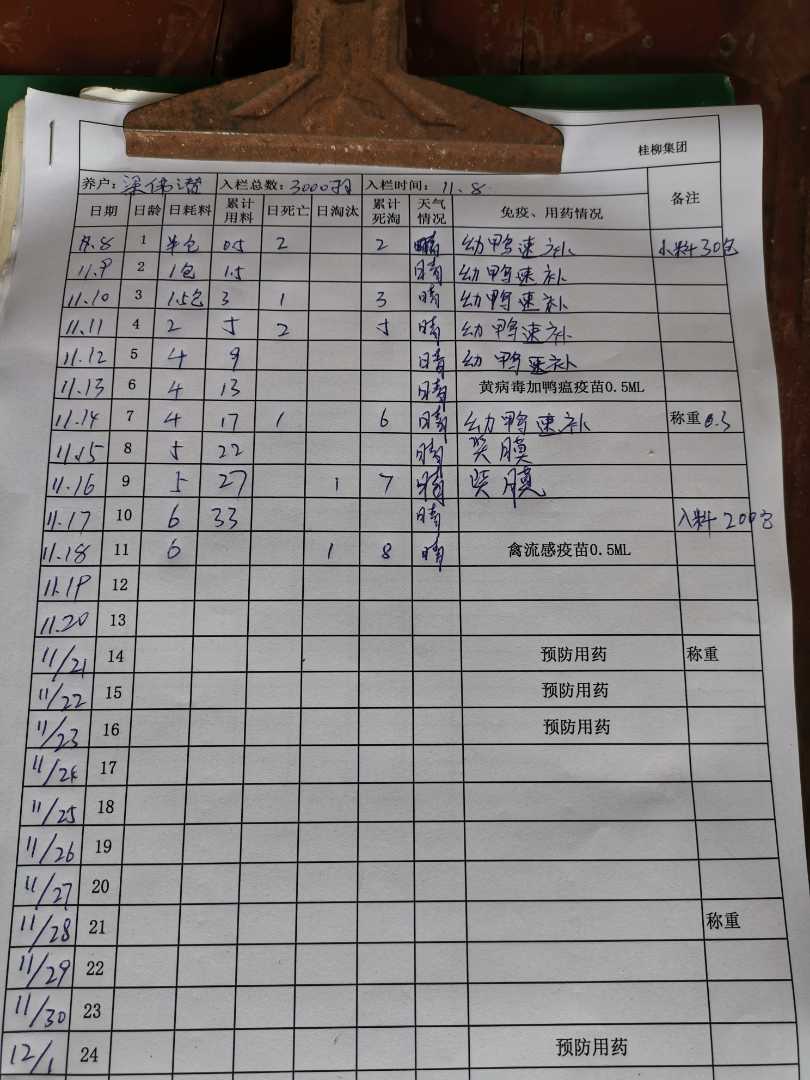 桂柳集团
养户: 梁伟潜 入栏总数: 3000羽 入栏时间: 11.8 备注
日期 日龄 日耗料 累计用料 日死亡 日淘汰 累计死淘 天气情况 免疫、用药情况
11.8 1 半包 0.5 2 2 晴 幼鸭速补 小料30包
11.9 2 1包 1.5 晴 幼鸭速补
11.10 3 1.5包 3 1 3 晴 幼鸭速补
11.11 4 2 5 2 5 晴 幼鸭速补
11.12 5 4 9 晴 幼鸭速补
11.13 6 4 13 晴 黄病毒加鸭瘟疫苗0.5ML
11.14 7 4 17 1 6 晴 幼鸭速补 称重 0.3
11.15 8 5 22 晴 膜
11.16 9 5 27 1 7 晴 膜
11.17 10 6 33 晴 入料200包
11.18 11 6 1 8 晴 禽流感疫苗0.5ML
11.19 12
11.20 13
11/21 14 预防用药 称重
11/22 15 预防用药
11/23 16 预防用药
11/24 17
11/25 18
11/26 19
11/27 20
11/28 21 称重
11/29 22
11/30 23
12/1 24 预防用药